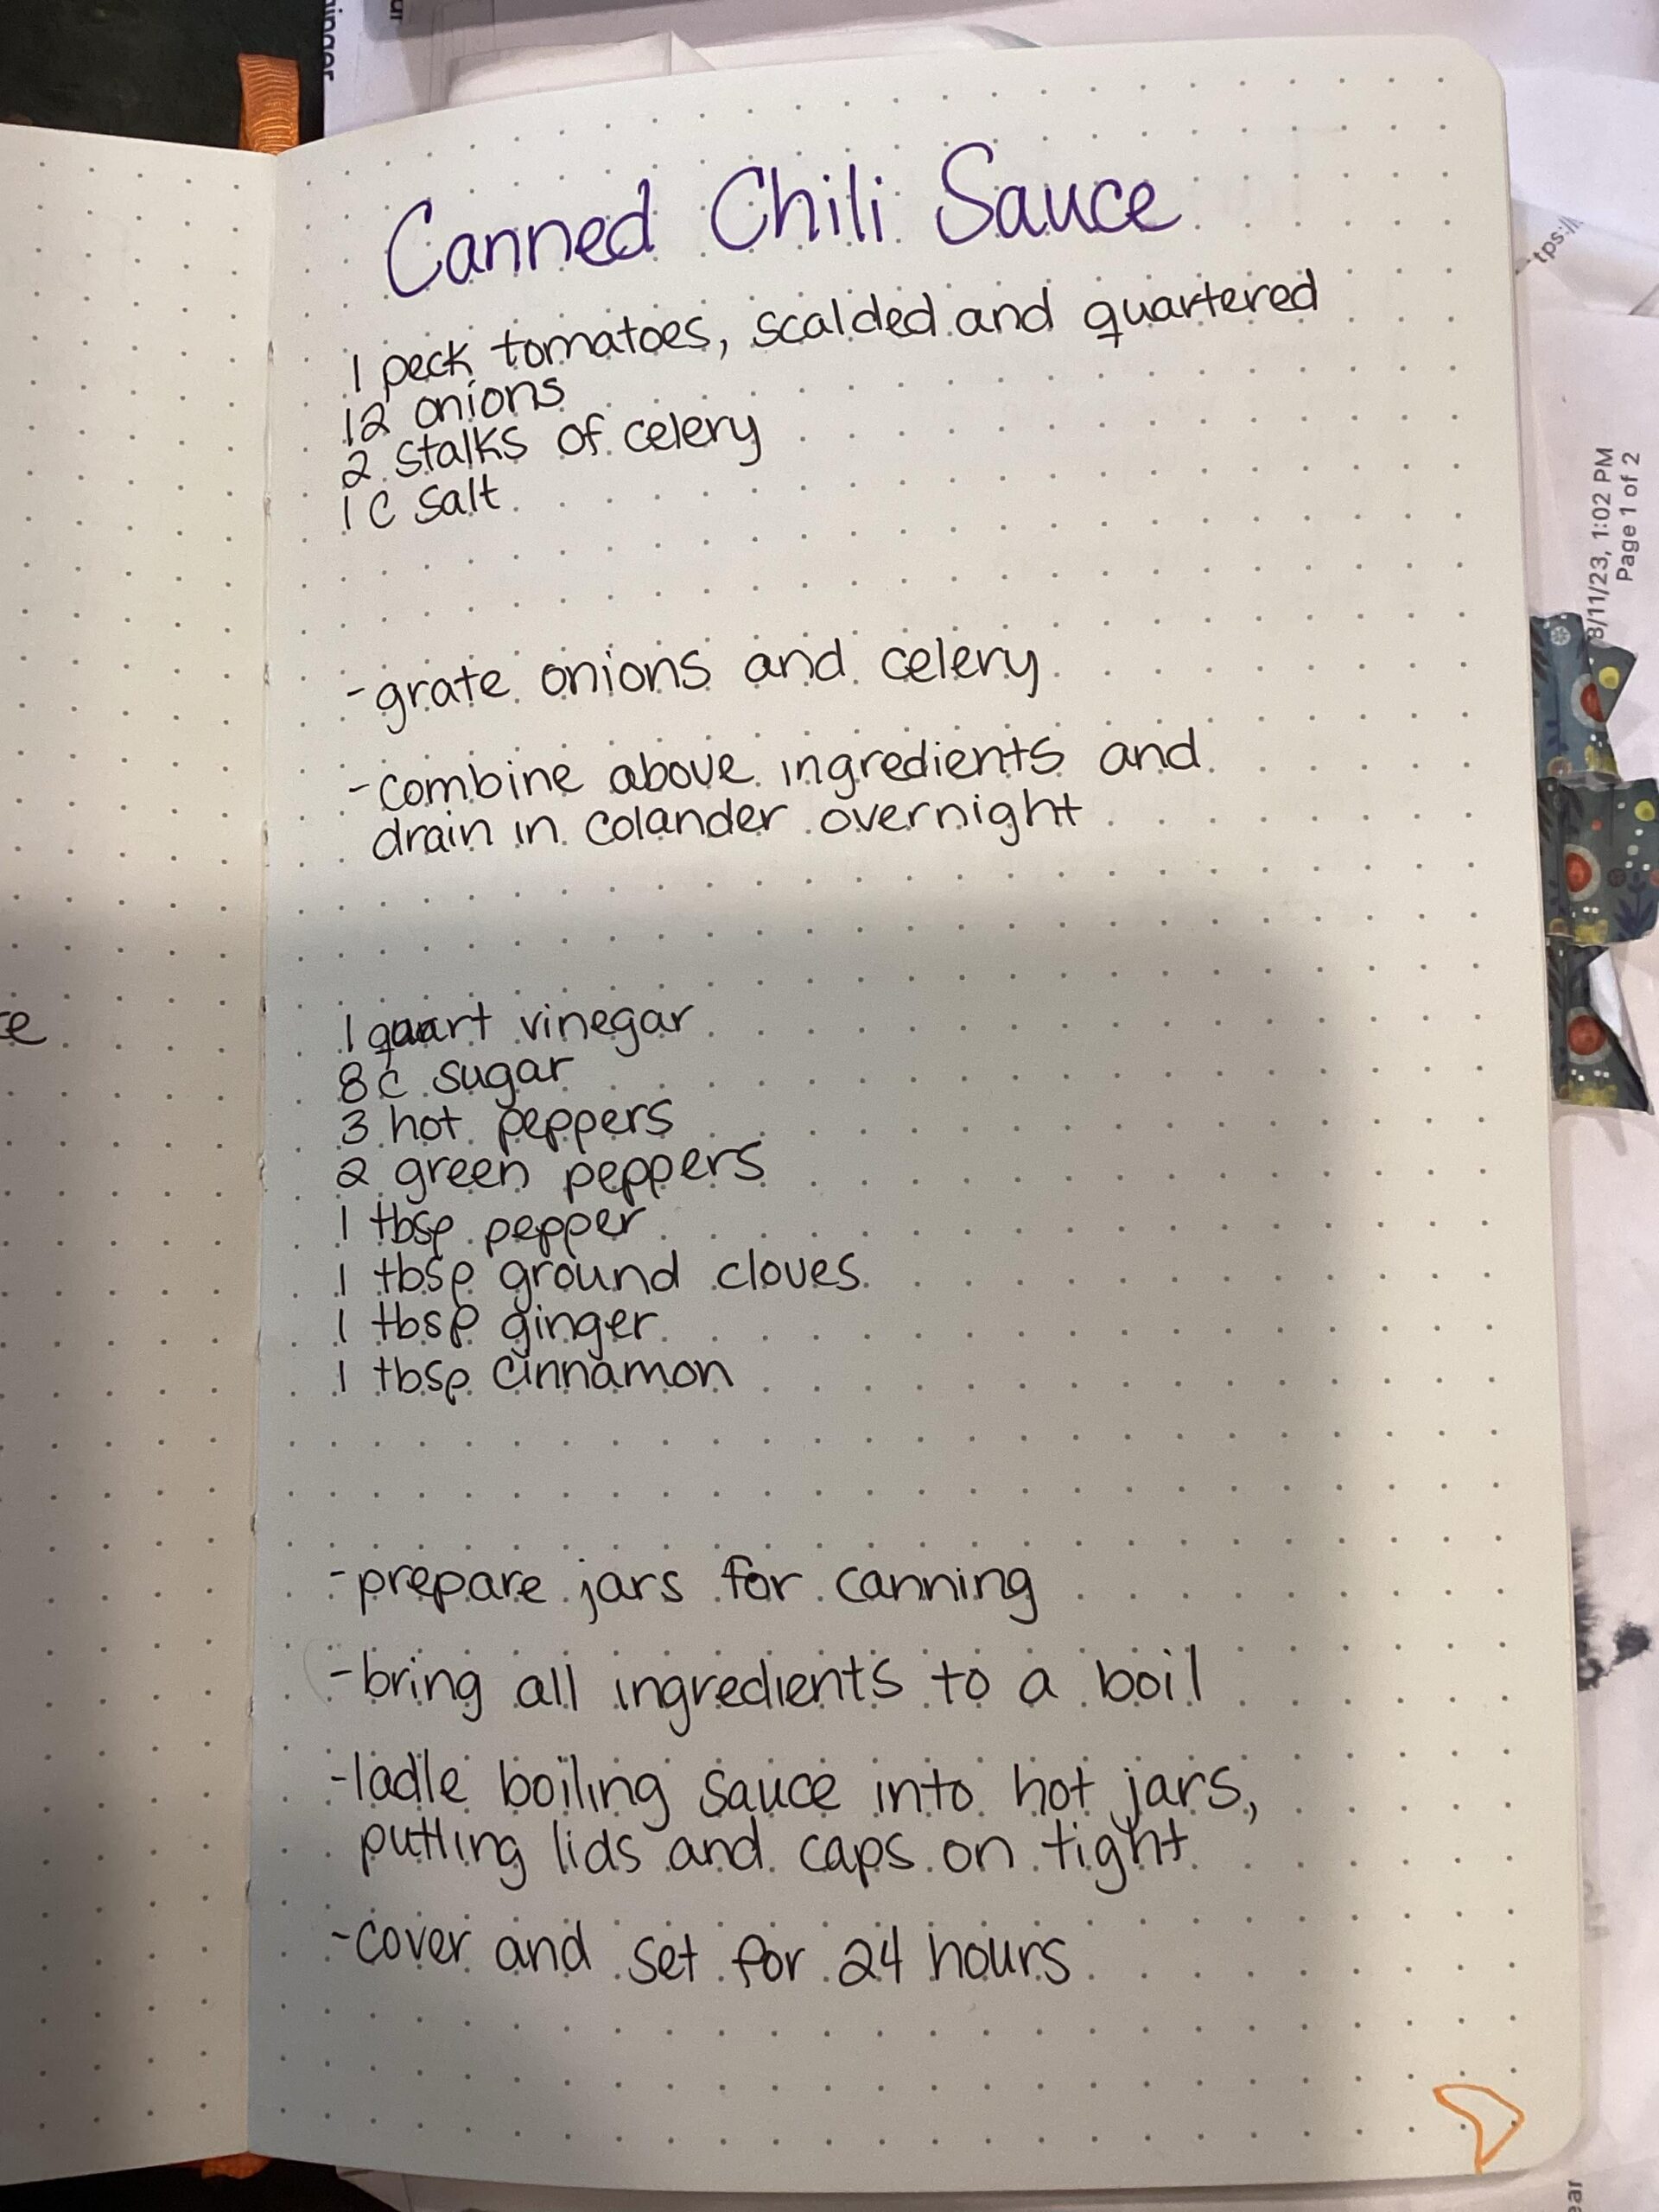 Canned Chili Sauce
1 peck tomatoes, scalded and quartered
12 onions
2 stalks of celery
1 C salt
- grate onions and celery
- combine above ingredients and
drain in colander overnight
1 quart vinegar
8 C sugar
3 hot peppers
2 green peppers
1 tbsp pepper
1 tbsp ground cloves
1 tbsp ginger
1 tbsp cinnamon
- prepare jars for canning
- bring all ingredients to a boil
- ladle boiling sauce into hot jars,
putting lids and caps on tight
- cover and set for 24 hours
8/11/23, 1:02 PM
Page 1 of 2
tps://